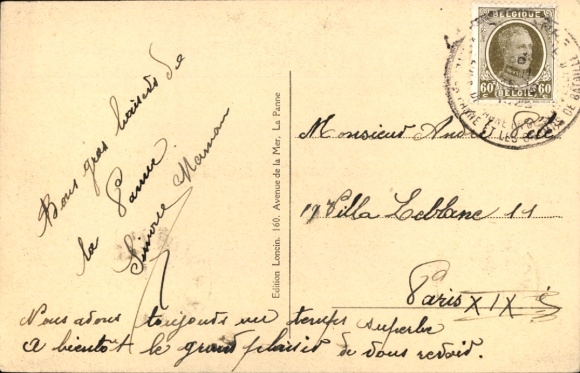 Bons gros baisers de
la Panne
Simone Maman
Nous avons toujours un temps superbe
A bientôt le grand plaisir de vous revoir.
Edition Loncin, 160, Avenue de la Mer, La Panne
BELGIQUE
60c 60c
BELGIE
Monsieur André
19 Villa Leblanc 11
Paris XIX